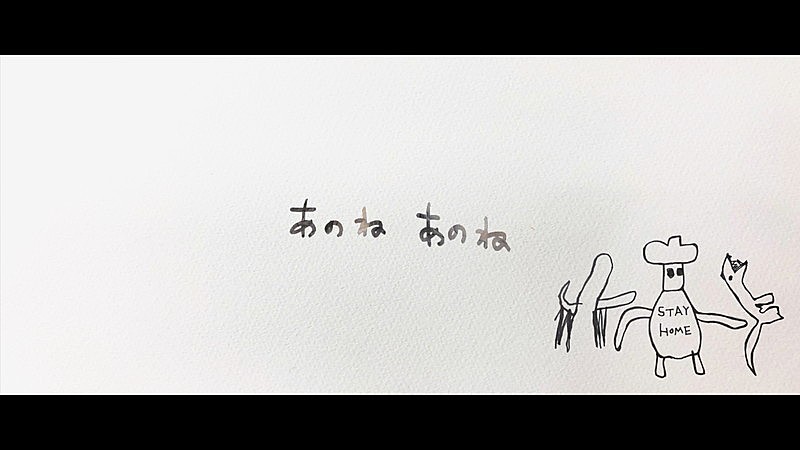 あのね あのね
STAY
HOME